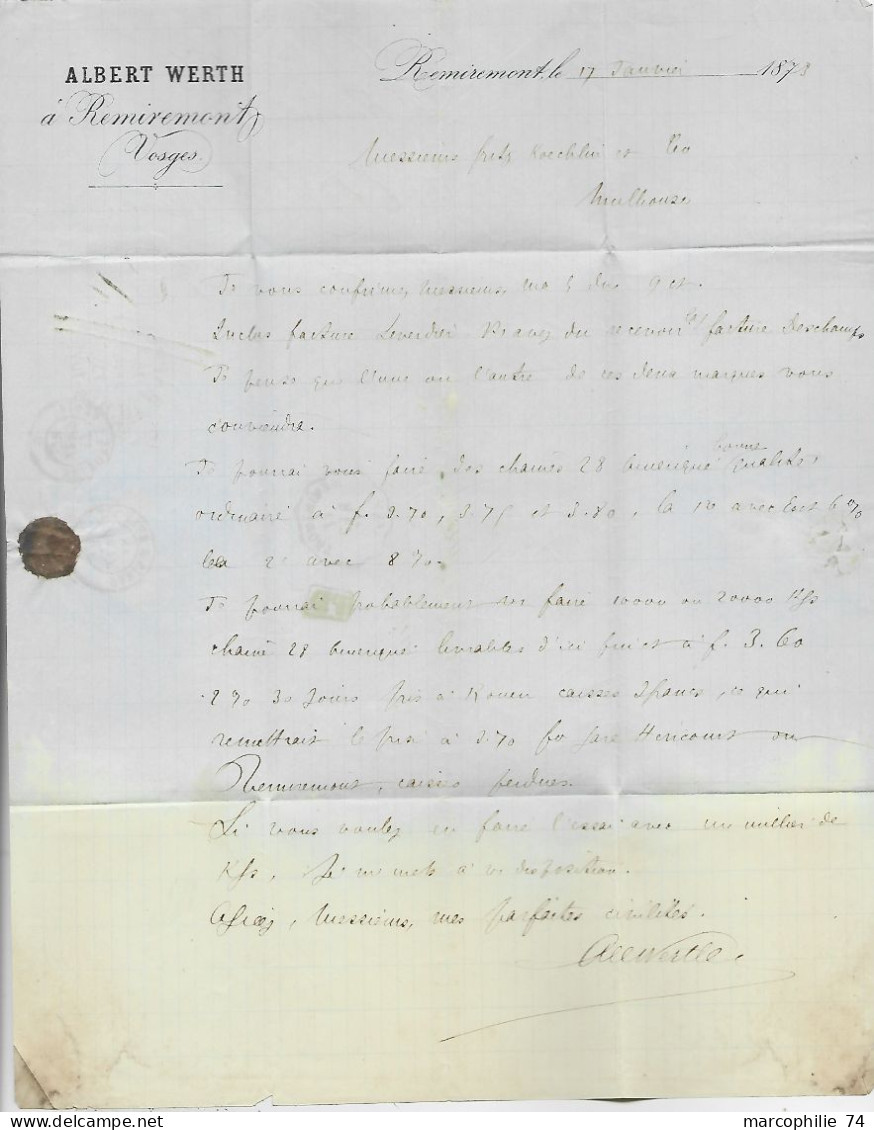 ALBERT WERTH
à Remiremont
Vosges.
Remiremont, le 17 Janvier 1873
Messieurs Fritz Koechlin et Cie
Mulhouse
Je vous confirme, Messieurs, ma du 9 ct.
Inclus facture avez du recevoir facture Deschamps
Je pense que l'une ou l'autre de ces deux marques vous
conviendra.
Je pourrai vous faire des chaines 28 bonne qualité
ordinaire à f. 3.70, 3.75 et 3.80, la 1re avec Esct 6 %
les 2 avec 8 %.
Je pourrai probablement faire 10000 ou 20000 Kgs
chaine 28 livrables d'ici fin ct à f. 3.60
2 % 30 jours pris à Rouen caisses 3 francs, ce qui
remettrait le prix à 3.70 fco gare Hericourt ou
Remiremont, caisses perdues.
Si vous voulez en faire l'essai avec un millier de
Kgs, je me mets à vre disposition.
Agréez, Messieurs, mes parfaites civilités.
Alb Werth
marcophilie 74